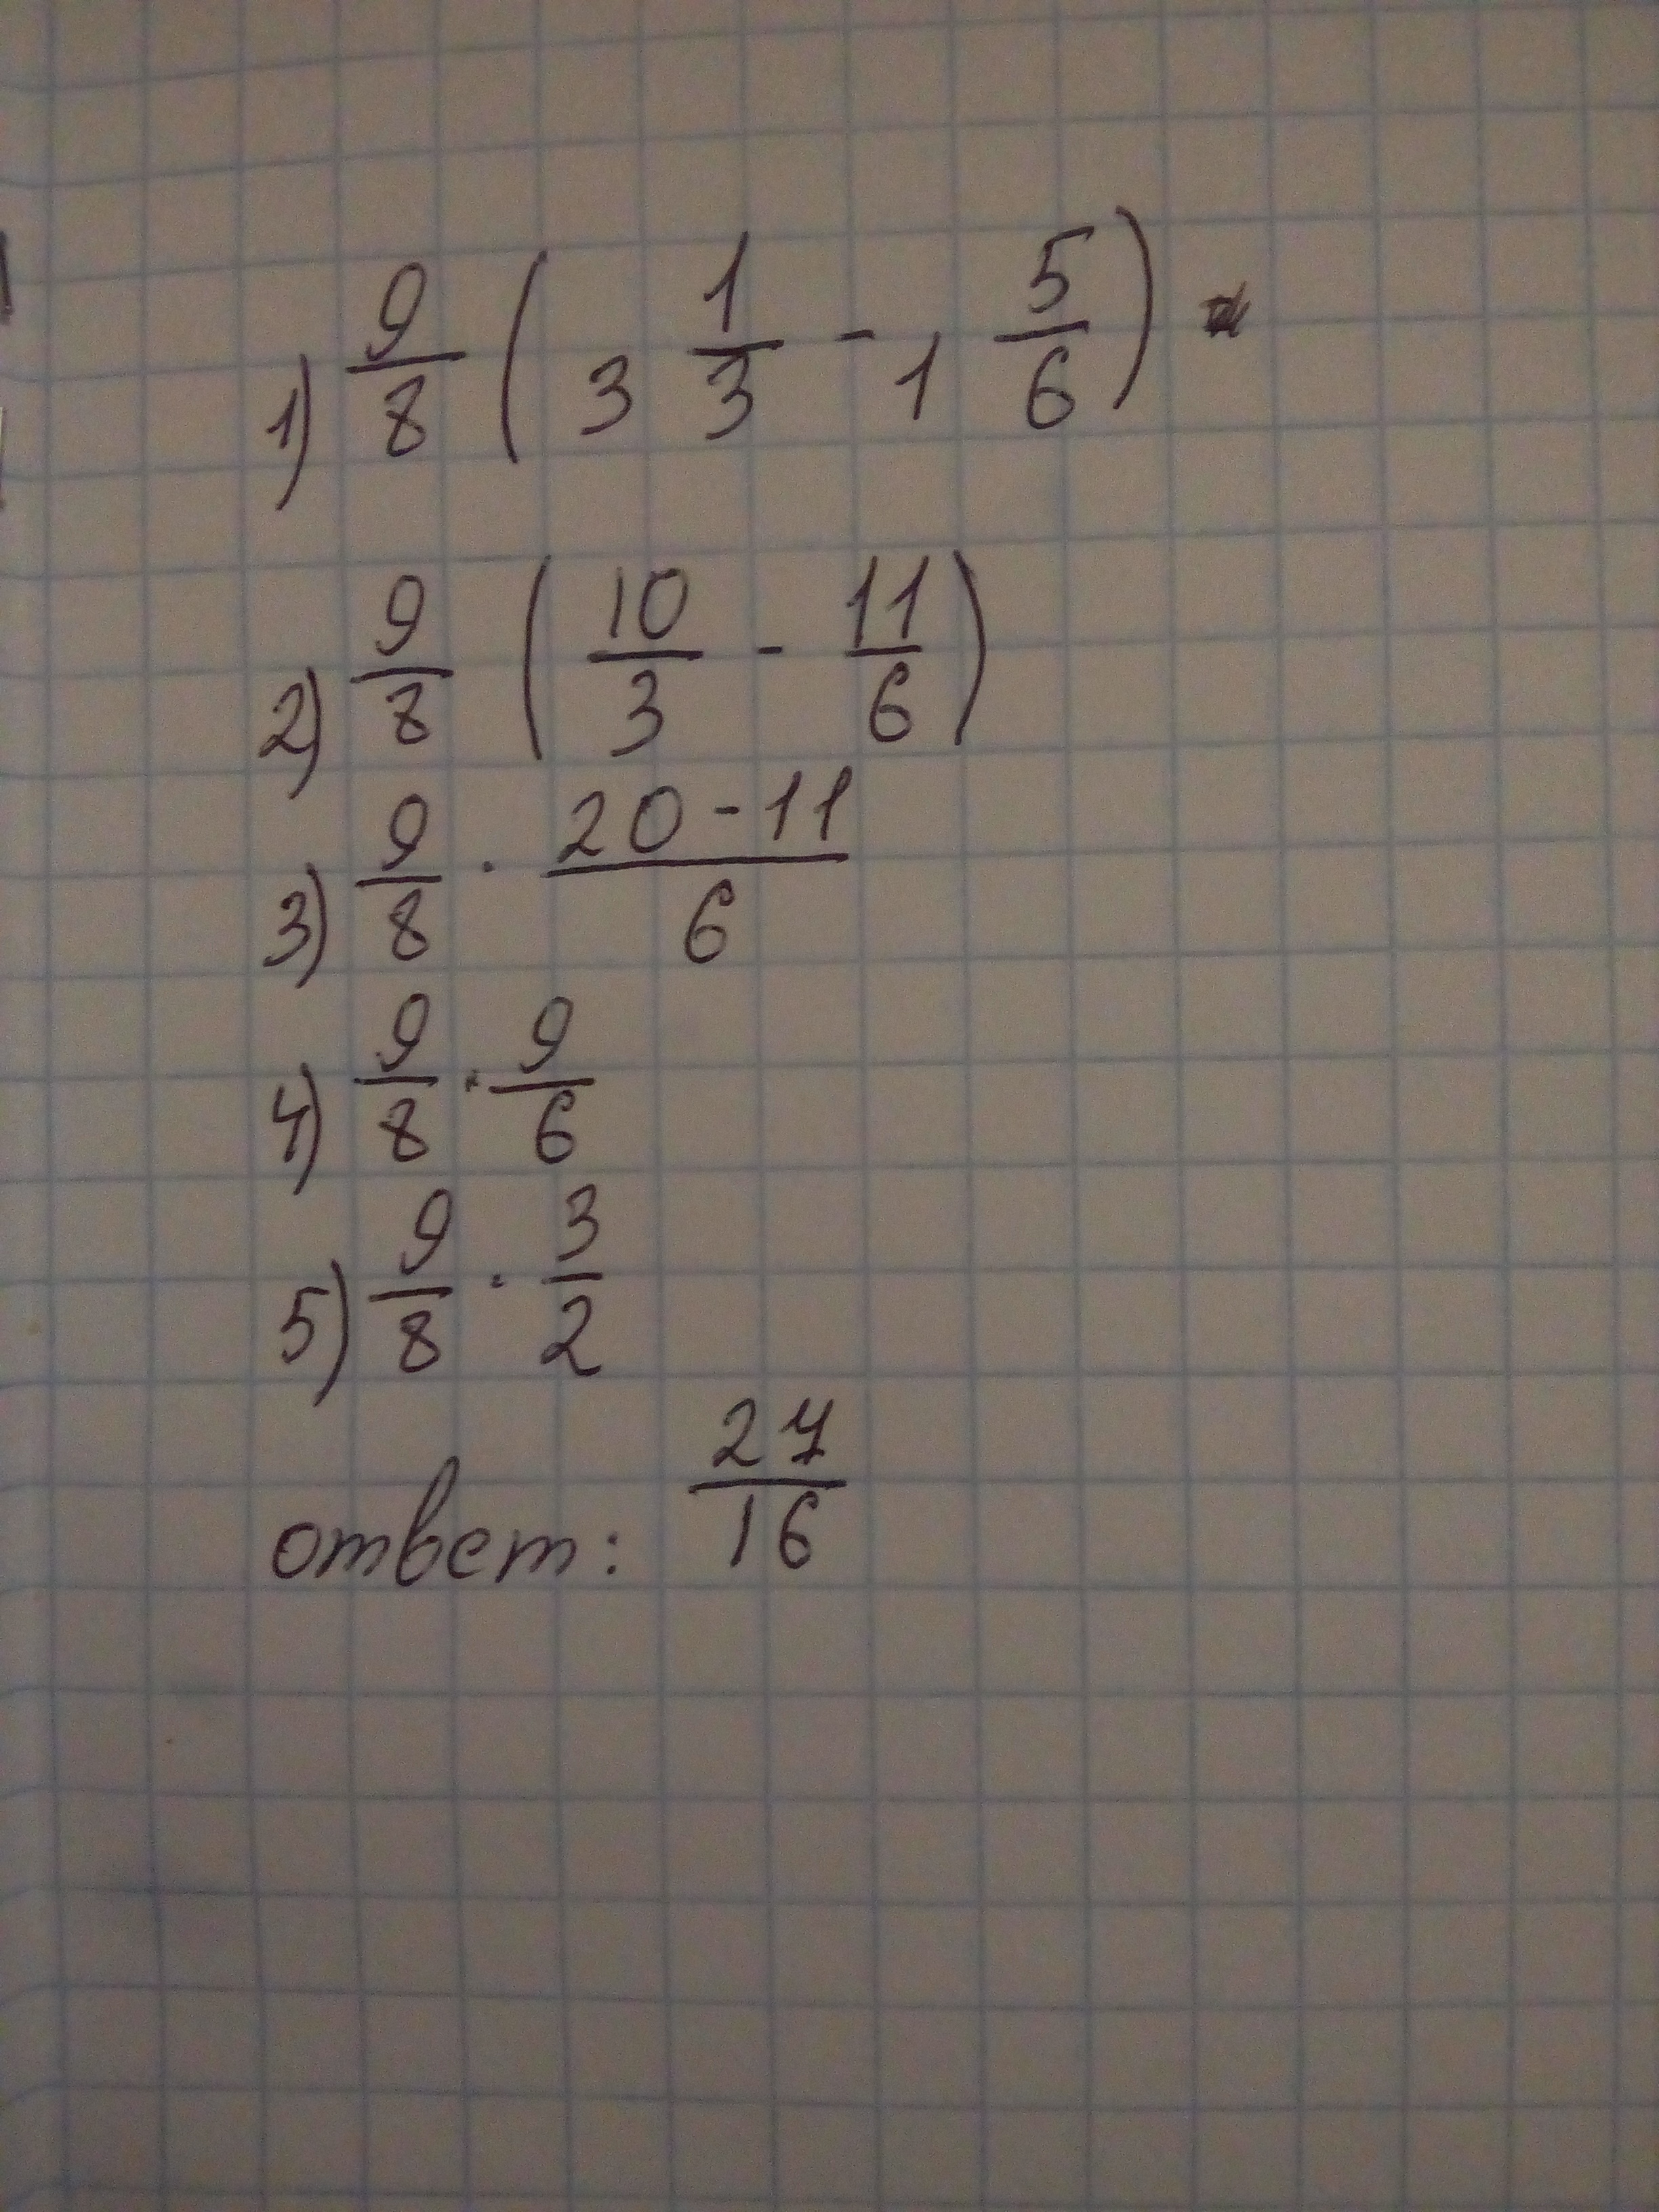 1) 9/8 ( 3 1/3 - 1 5/6 )
2) 9/8 ( 10/3 - 11/6 )
3) 9/8 · 20-11/6
4) 9/8 · 9/6
5) 9/8 · 3/2
ответ: 27/16